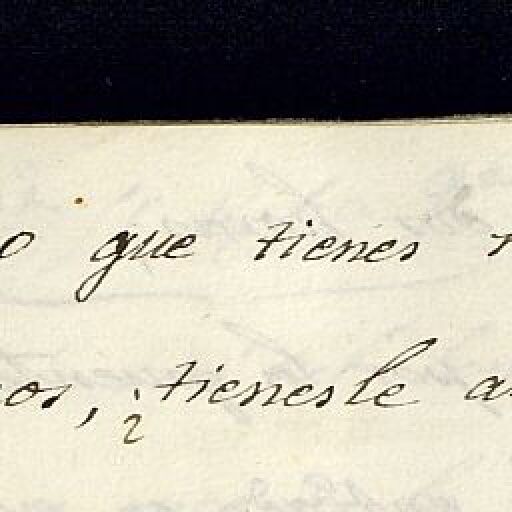 o que tienes
os, ¿tienesle a